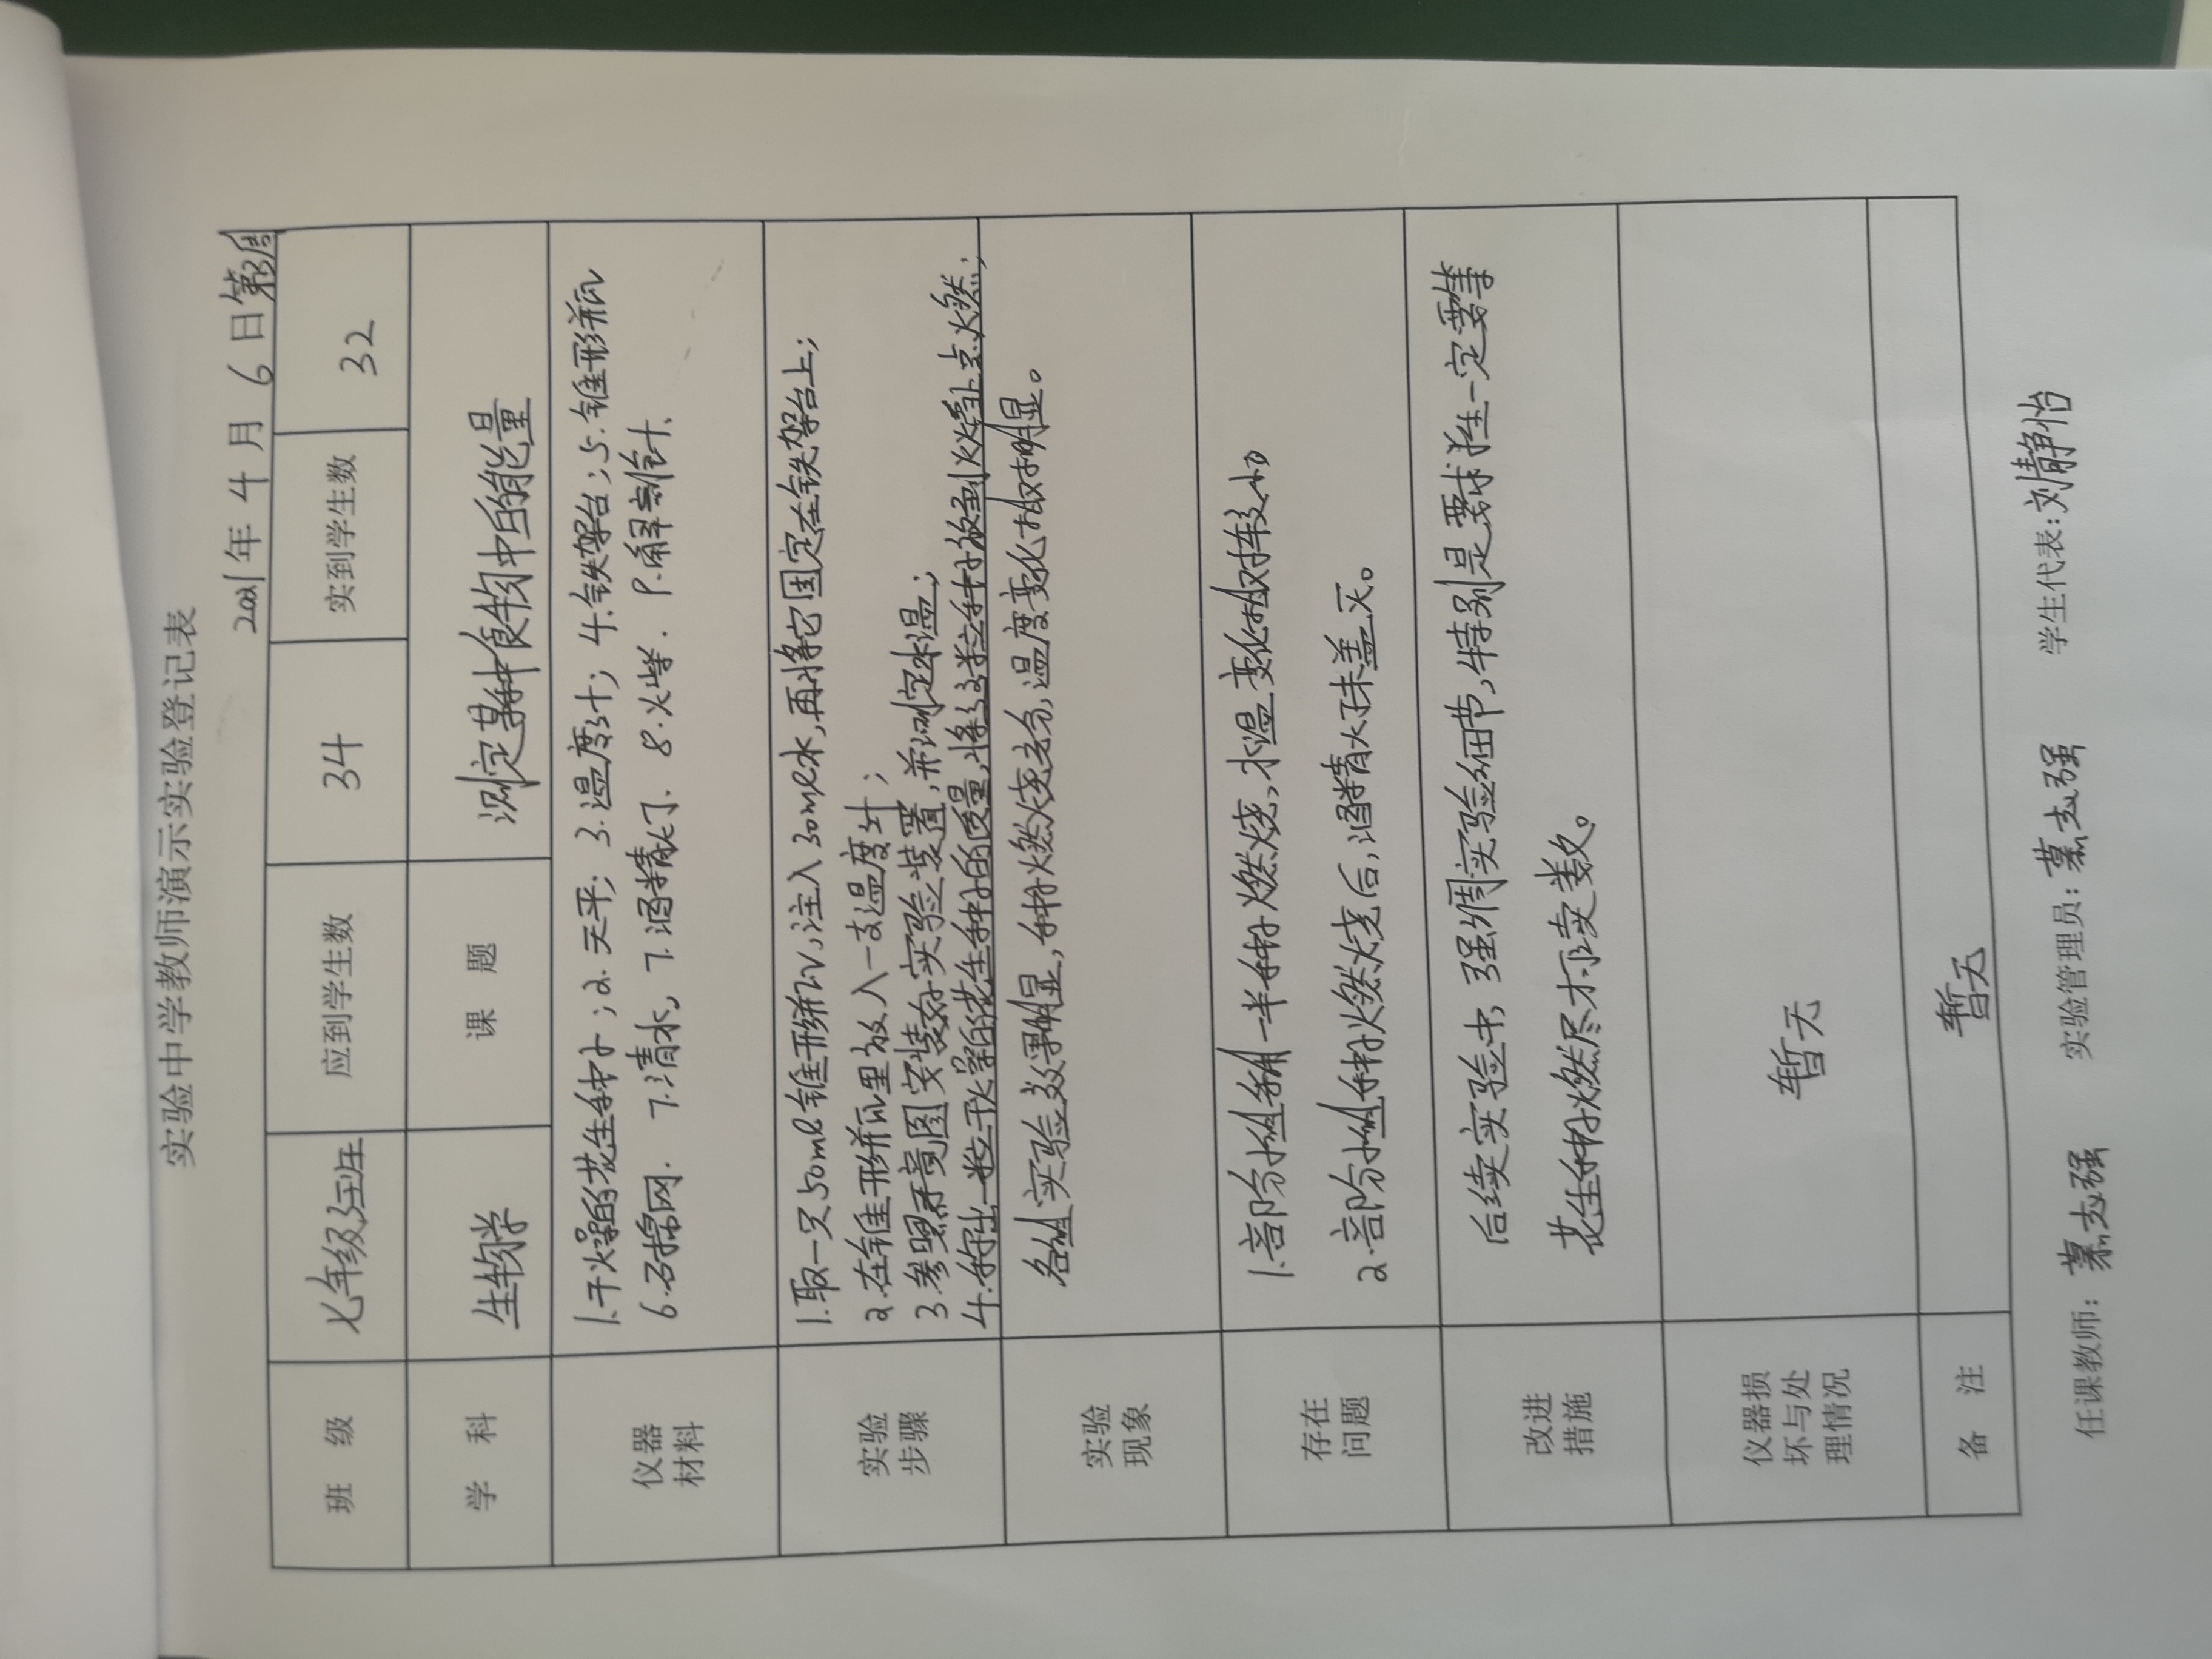 实验中学教师演示实验登记表
2021年 4 月 6 日 第3周
班 级 七年级3班 应到学生数 34 实到学生数 32
学 科 生物学 课 题 测定某种食物中的能量
仪器材料
1.干燥的花生种子；2.天平；3.温度计；4.铁架台；5.锥形瓶
6.石棉网．7.清水，7.酒精灯．8.火柴．9.解剖针．
实验步骤
1.取一只50ml锥形瓶，注入30ml水，再将它固定在铁架台上；
2.在锥形瓶里放入一支温度计；
3.参照示意图安装好实验装置，并测定水温；
4.称出一粒干燥的花生种子的质量，将这粒种子放到火焰上点燃，
实验现象
各组实验效果明显，种子燃烧充分，温度变化相对明显。
存在问题
1.部分小组有一半种子燃烧，水温变化相对较小
2.部分小组种子燃烧后，酒精灯未盖灭。
改进措施
后续实验中，强调实验细节，特别是要求学生一定要等
花生种子燃尽才可读数。
仪器损坏与处理情况
暂无
备 注 暂无
任课教师：慕志强 实验管理员：慕志强 学生代表：刘静怡